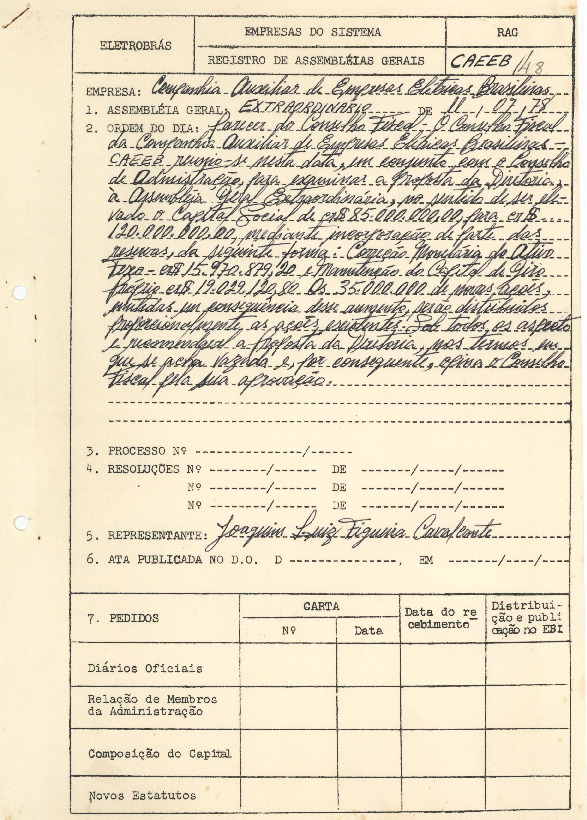 ELETROBRÁS
EMPRESAS DO SISTEMA
RAG
REGISTRO DE ASSEMBLÉIAS GERAIS
CAEEB/48
EMPRESA: Companhia Auxiliar de Empresas Elétricas Brasileiras
1. ASSEMBLÉIA GERAL: EXTRAORDINÁRIO DE 11 / 07 / 78
2. ORDEM DO DIA: Parecer do Conselho Fiscal - O Conselho Fiscal
da Companhia Auxiliar de Empresas Elétricas Brasileiras -
CAEEB reuniu-se nesta data, em conjunto com o Conselho
de Administração, para examinar a Proposta da Diretoria,
à Assembléia Geral Extraordinária, no sentido de ser ele-
vado o Capital Social de cr$ 85.000.000,00 para cr$
120.000.000,00, mediante incorporação de parte das
reservas, da seguinte forma - Correção Monetária do Ativo
Fixo - cr$ 15.970.879,20 e Manutenção do Capital de Giro
Próprio cr$ 19.029.120,80 Os 35.000.000 de novas ações,
emitidas em consequência desse aumento, serão distribuídas
proporcionalmente, as ações existentes. Sob todos os aspecto
e recomendável a Proposta da Diretoria, nos termos em
que se acha vazada e, por conseguinte, opina o Conselho
Fiscal pela sua aprovação.
3. PROCESSO Nº ---------------/------
4. RESOLUÇÕES Nº --------/----- DE ------/-----/------
Nº --------/----- DE ------/-----/------
Nº --------/----- DE ------/-----/------
5. REPRESENTANTE: Joaquim Luiz Figueira Cavalcante
6. ATA PUBLICADA NO D.O. D ---------------, EM ------/----/----
7. PEDIDOS
CARTA
Nº
Data
Data do re
cebimento
Distribui-
ção e publi
cação no EBI
Diários Oficiais
Relação de Membros
da Administração
Composição do Capital
Novos Estatutos